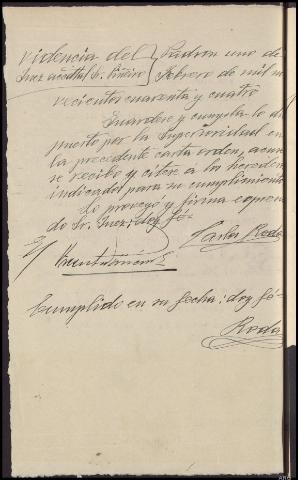 Videncia del } Padron uno de
Juez accidtal Sr. Piñeiro } Febrero de mil no
vecientos cuarenta y cuatro
Guardese y cumpla lo dis
puesto por la Superioridad en
la precedente carta orden, acuse
se recibo y citese a los herederos
indicados para su cumplimiento
Lo proveyó y firma expresa
do Sr. Juez; doy fé-
Carlos Roda
Cumplido en su fecha: doy fé-
Roda